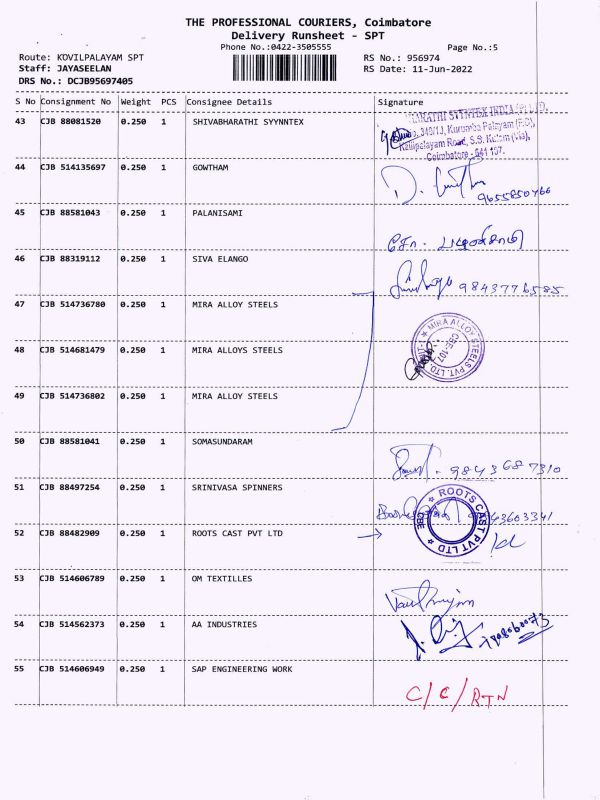 THE PROFESSIONAL COURIERS, Coimbatore
Delivery Runsheet - SPT
Phone No.:0422-3505555
Page No.:5
Route: KOVILPALAYAM SPT
RS No.: 956974
Staff: JAYASEELAN
RS Date: 11-Jun-2022
DRS No.: DCJB95697405
S No Consignment No Weight PCS Consignee Details Signature
43 CJB 88081520 0.250 1 SHIVABHARATHI SYYNNTEX
INDIA (P) LTD.
Kurumba Palayam (P.O),
Kalipalayam Road, S.S. Kulam (Via),
Coimbatore - 641 107.
44 CJB 514135697 0.250 1 GOWTHAM
9655850466
45 CJB 88581043 0.250 1 PALANISAMI
46 CJB 88319112 0.250 1 SIVA ELANGO
9843776585
47 CJB 514736780 0.250 1 MIRA ALLOY STEELS
MIRA ALLOY STEELS PVT. LTD.
CBE-107
48 CJB 514681479 0.250 1 MIRA ALLOYS STEELS
49 CJB 514736802 0.250 1 MIRA ALLOY STEELS
50 CJB 88581041 0.250 1 SOMASUNDARAM
9843687310
51 CJB 88497254 0.250 1 SRINIVASA SPINNERS
43603341
52 CJB 88482909 0.250 1 ROOTS CAST PVT LTD
ROOTS CAST PVT LTD
CBE
53 CJB 514606789 0.250 1 OM TEXTILLES
54 CJB 514562373 0.250 1 AA INDUSTRIES
55 CJB 514606949 0.250 1 SAP ENGINEERING WORK
C/C/RTN